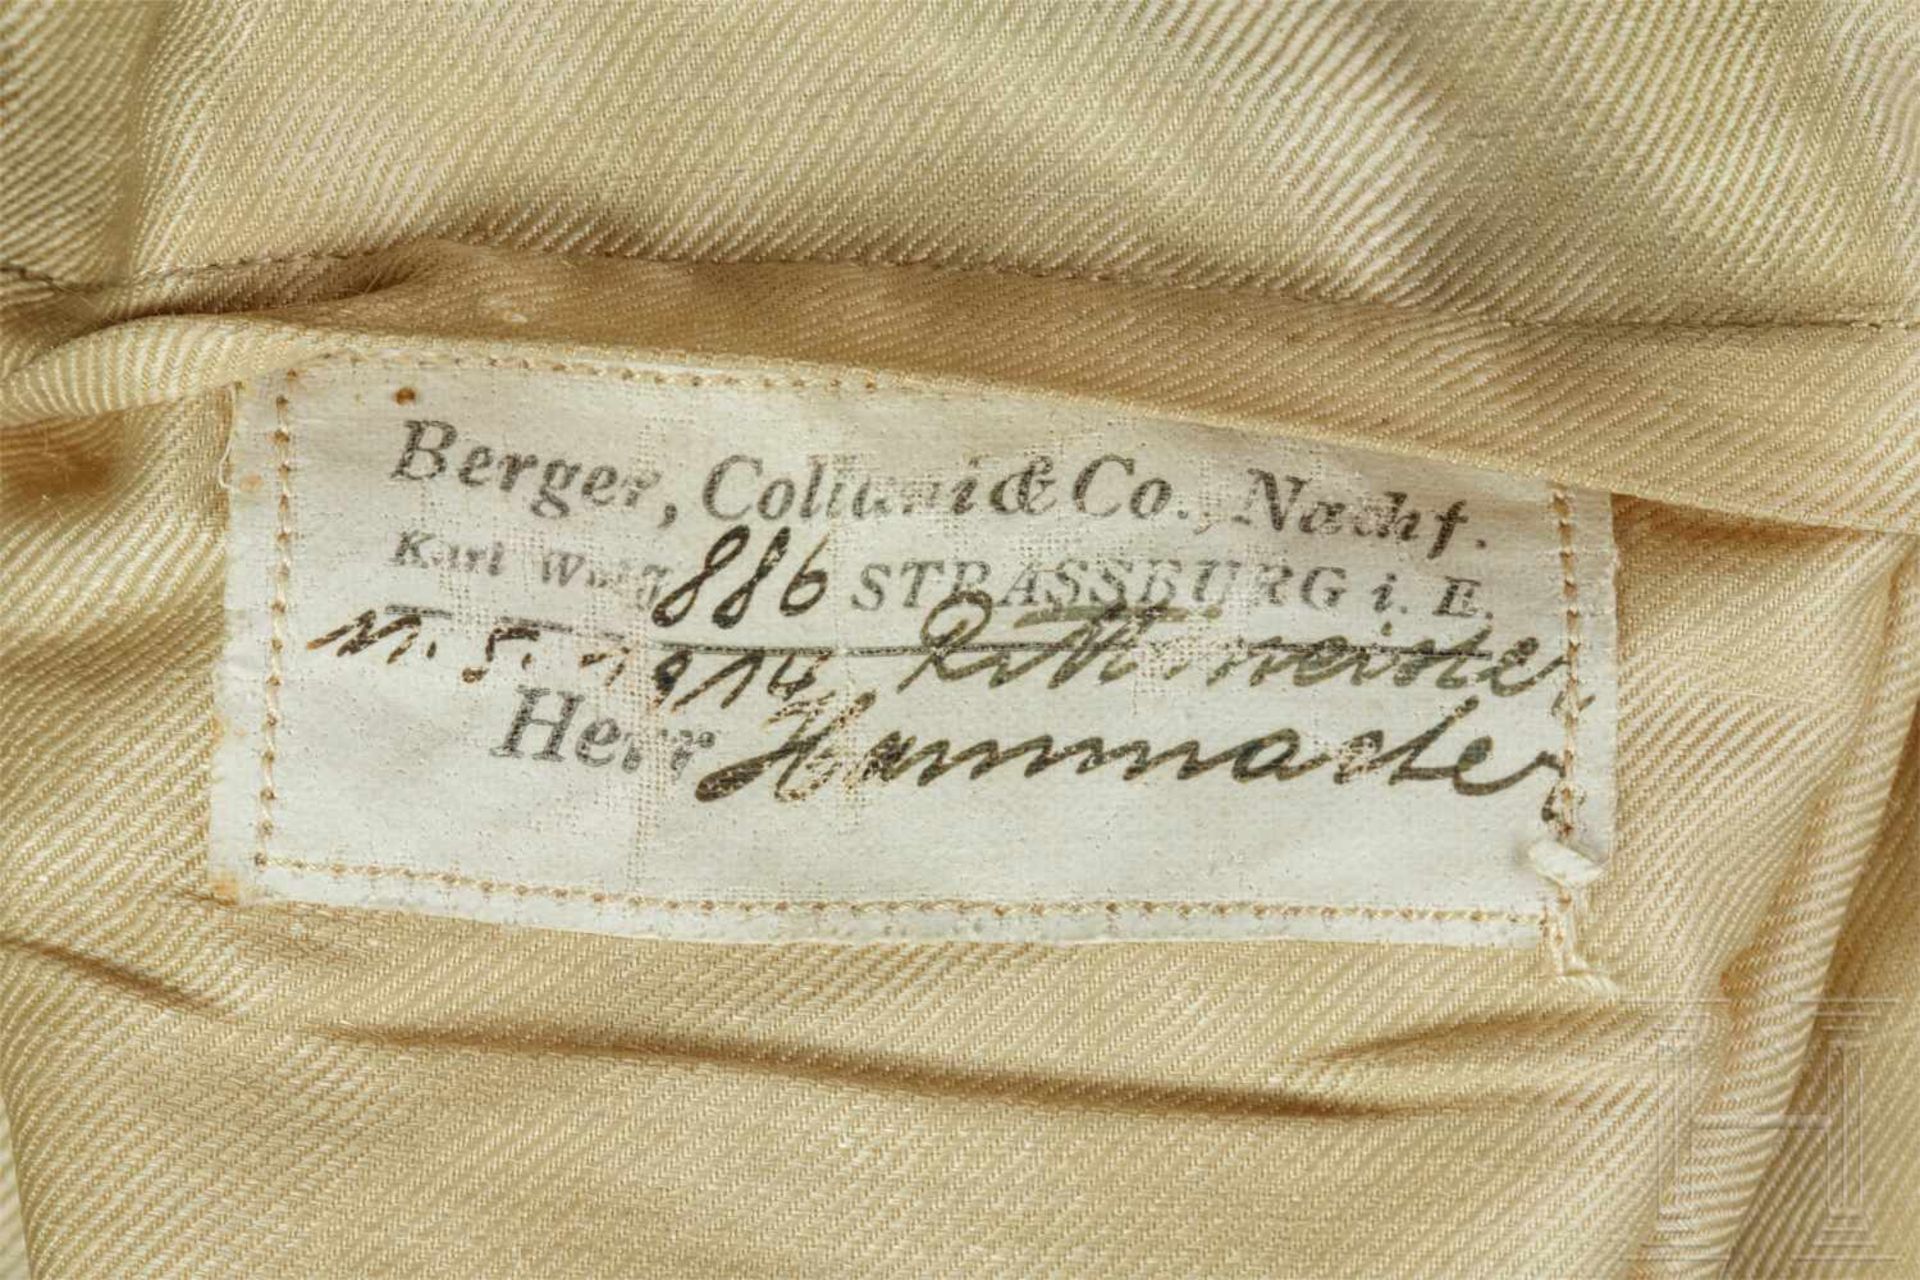 Berger, Collani & Co., Nachf.
Karl 886 STRASSBURG i. E.
11. 5. 1914. Rittmeister
Herr Hammacher